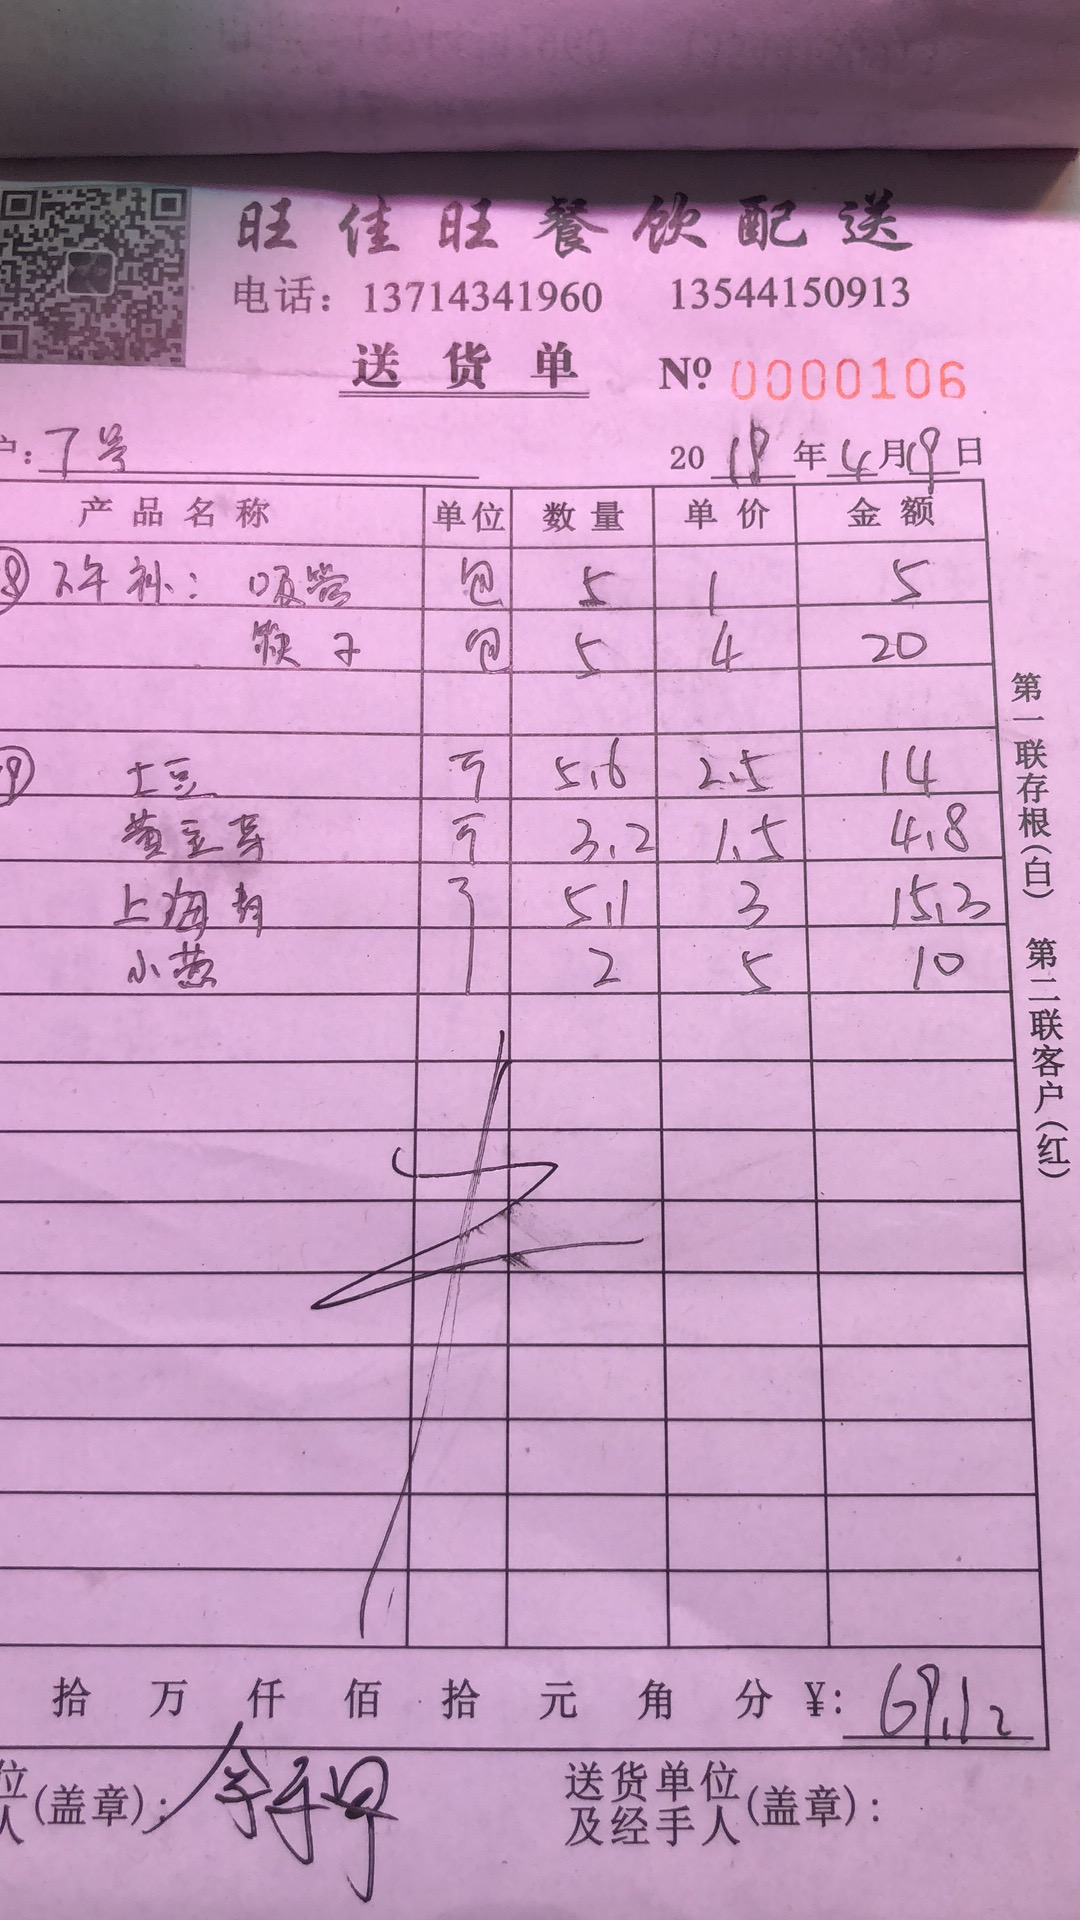 旺佳旺餐饮配送
电话：13714341960 13544150913
送货单 Nº 0000106
户：7号 2018年4月19日
产品名称 单位 数量 单价 金额
⑧ 下午补：吸管 包 5 1 5
筷子 包 5 4 20
土豆 斤 5.6 2.5 14
黄豆芽 斤 3.2 1.5 4.8
上海青 5.1 3 15.3
小葱 2 5 10
第一联存根(白) 第二联客户(红)
拾 万 仟 佰 拾 元 角 分 ¥: 69.1
位
人(盖章)：
送货单位
及经手人(盖章)：